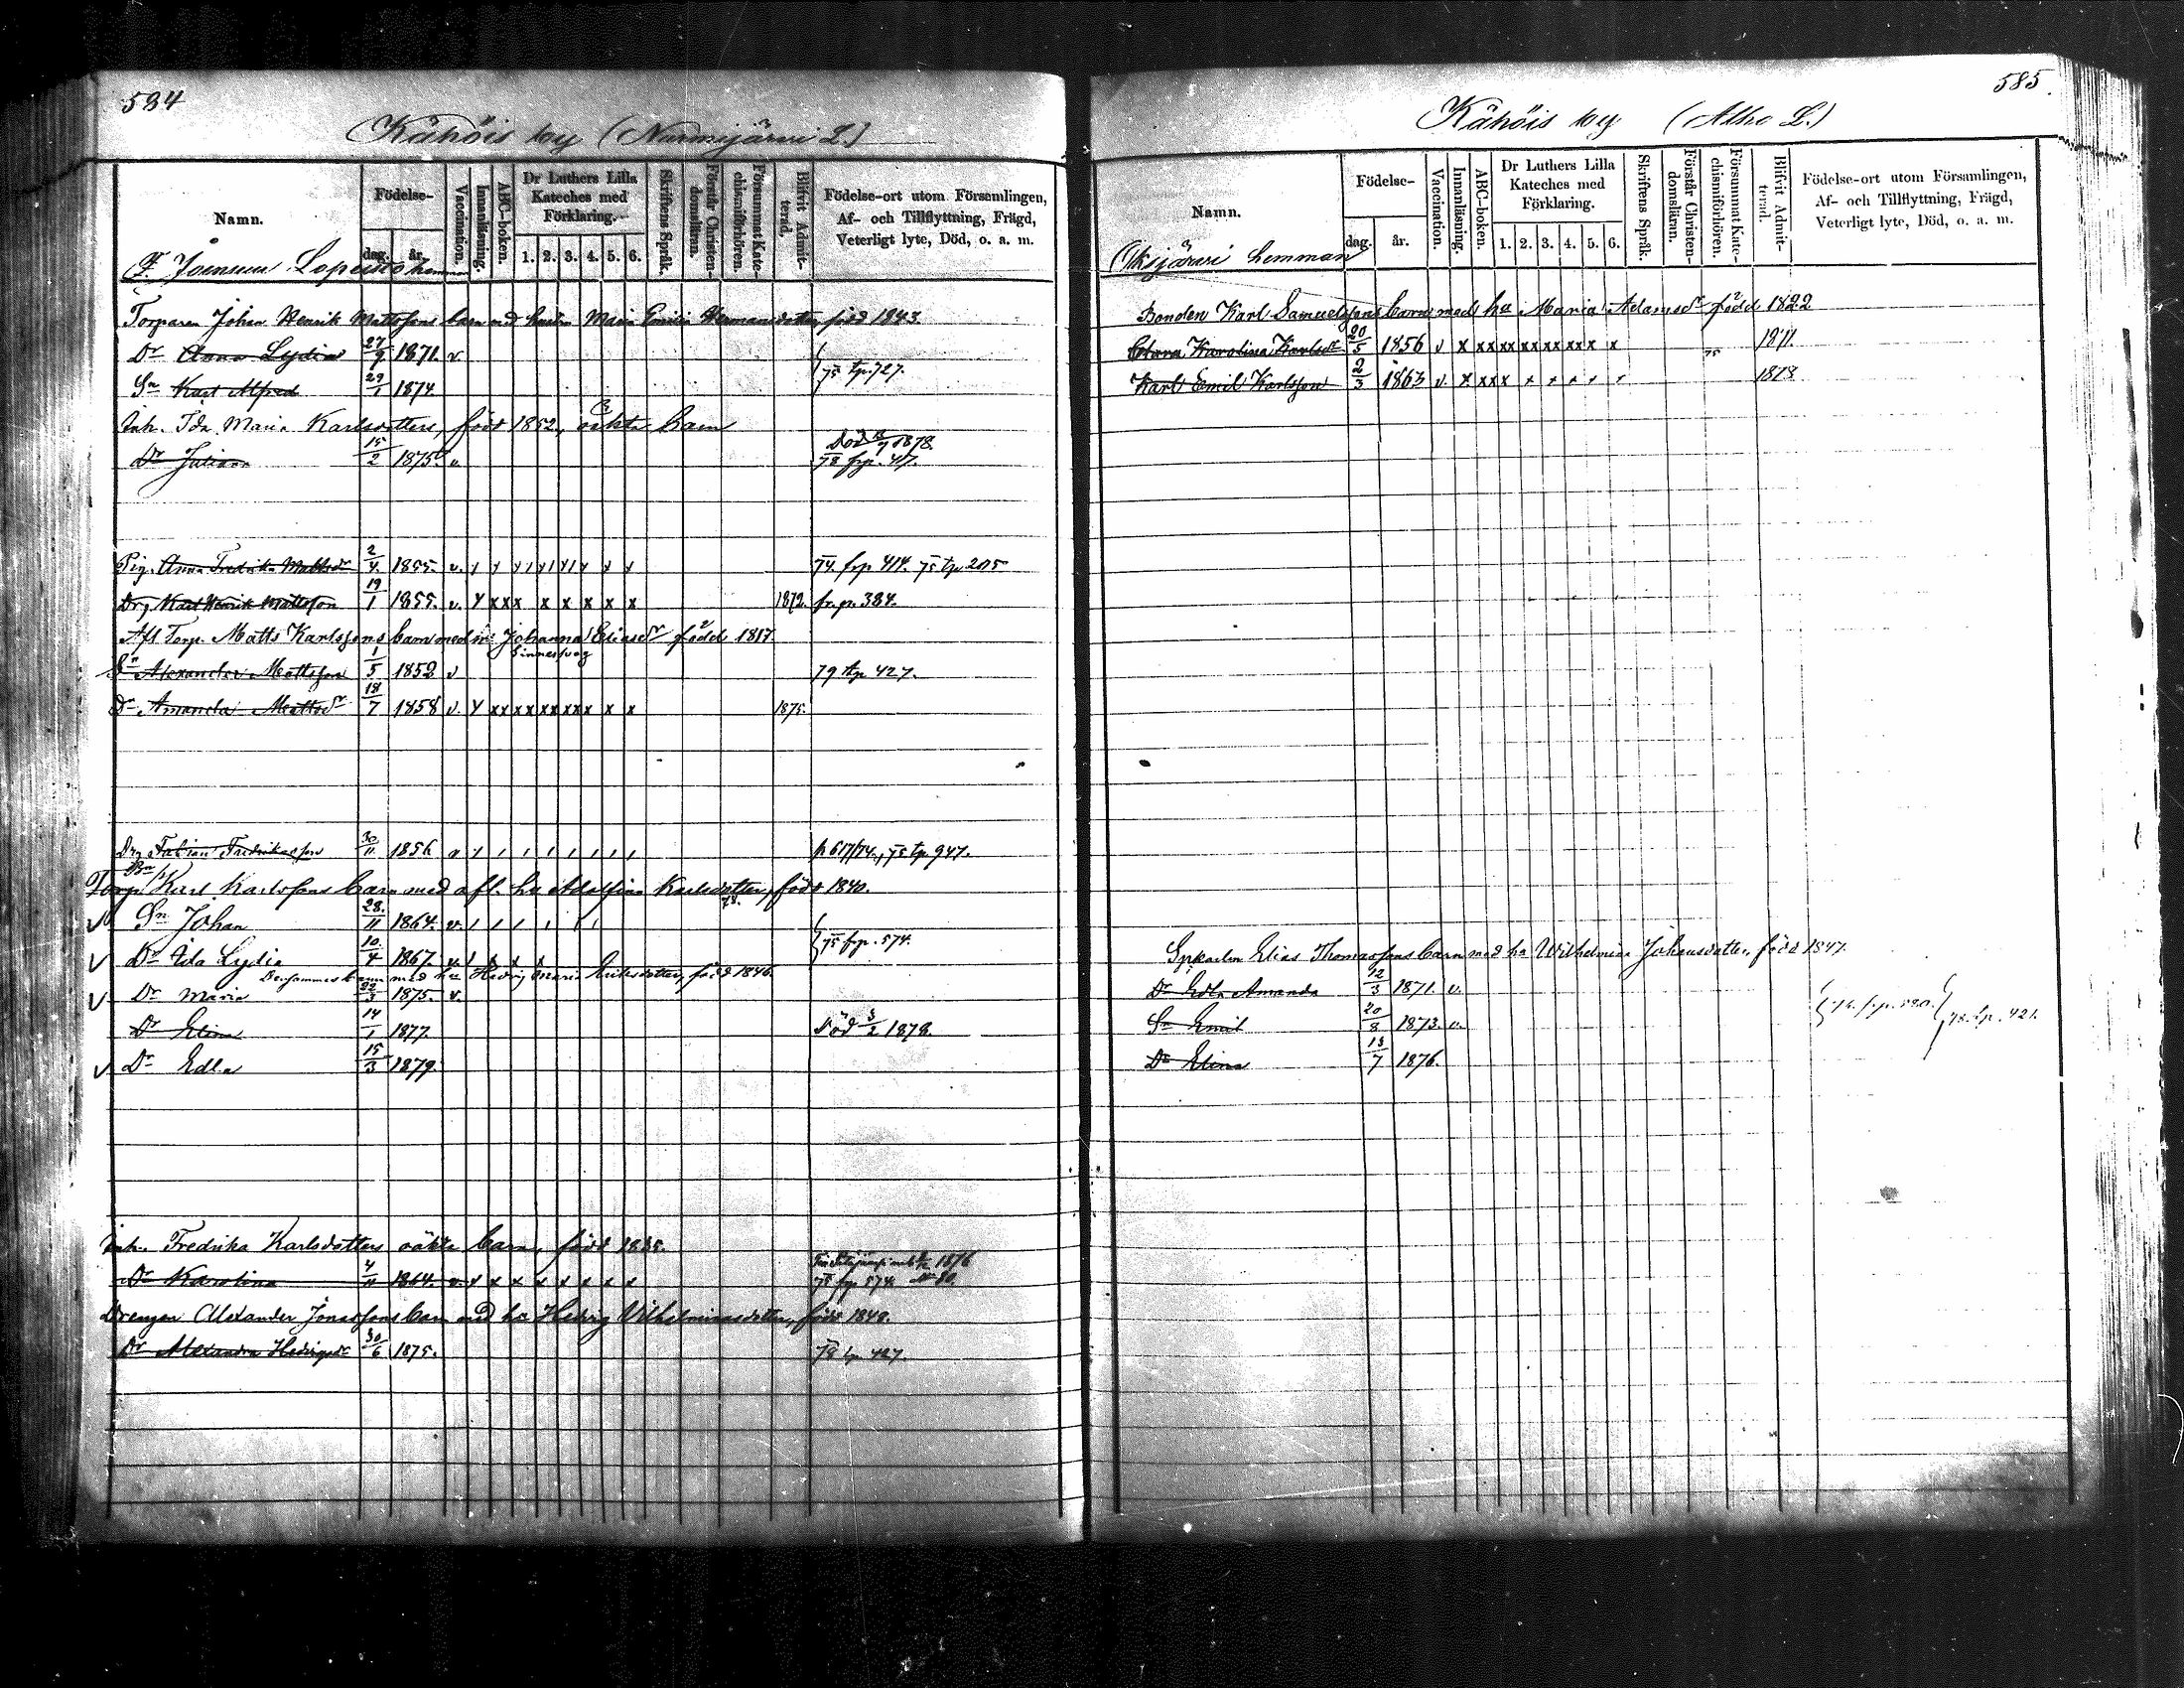 584
Kähöis by (Nurmijärvi L.)
Namn.
Födelse-
dag.
år.
Vaccination.
Innanläsning.
ABC-boken.
Dr Luthers Lilla Kateches med Förklaring.
1. 2. 3. 4. 5. 6.
Skriftens Språk.
Förstår Christen-domsläran.
Försummat Kate-chismiförhören.
Blifvit Admit-terad.
Födelse-ort utom Församlingen,
Af- och Tillflyttning, Frägd,
Veterligt lyte, Död, o. a. m.
Torparen Johan Henrik Mattssons barn med hustru Maria Emilia Hermansdotter, född 1843.
Dr Anna Lydia 27/9 1871. v
Sn Karl Alfred 29/1 1874. 75 tp. 727.
Inh. Ida Maria Karlsdotters, född 1852, oäkta barn
Dr Juliana 15/2 1875. v. 78 frp. 417.
Pig. Anna Fredrika Mattsdr 2/4 1855. v. 74. frp 414. 75 tp 205
Drg Karl Henrik Mattsson 19/1 1855. v. x x x x x x x x x 1872. fr. p. 384.
Afl. Torp. Matts Karlssons barn med Johanna Eliasdr född 1817.
Sinnessvag
Sn Alexander Mattsson 1/5 1852 v 79 tp 427.
Dr Amanda Mattsdr 18/7 1858 v. x x x x x x x x x x x x 1875.
Drg Fabian Fredriksson 30/11 1856 v p 617/74., 75 tp 947.
Torp. Karl Karlssons barn med afl. hu Adolfina Karlsdotter, född 1840.
v Sn Johan 28/11 1864. v.
v Dr Ida Lydia 10/4 1867. v. 75 frp. 574.
Densammes barn med hu Hedvig Maria Eriksdotter, född 1846.
v Dr Maria 22/3 1875. v.
Dr Elina 14/1 1877. Död 3/2 1878.
v Dr Edla 15/3 1879.
Inh. Fredrika Karlsdotters oäkta barn, född 1835.
Dr Karolina 4/11 1864. v. x x x x x x x x 75 frp 574. № 80.
Drengen Alexander Jonassons barn med hu Hedvig Vilhelminasdotter, född 1848.
Dr Alexandra Hedvigsdr 30/6 1875. 78 tp 427.
585.
Kähöis by (Alho L.)
Namn.
Födelse-
dag.
år.
Vaccination.
Innanläsning.
ABC-boken.
Dr Luthers Lilla Kateches med Förklaring.
1. 2. 3. 4. 5. 6.
Skriftens Språk.
Förstår Christen-domsläran.
Försummat Kate-chismiförhören.
Blifvit Admit-terad.
Födelse-ort utom Församlingen,
Af- och Tillflyttning, Frägd,
Veterligt lyte, Död, o. a. m.
Yksjärvi hemman
Bonden Karl Samuelssons barn med hu Maria Adamsdr född 1822
Karolina Karlsdr 20/5 1856 v x x x x x x x x x x x 75
Karl Emil Karlsson 2/3 1863 v. x x x x x x x x x 1878
Spkarlen Elias Thomassons barn med hu Wilhelmina Johansdotter, född 1847.
Dr Edla Amanda 12/3 1871. v.
Sn Emil 20/8 1873. v. 78. tp. 421.
Dr Elina 13/7 1876.